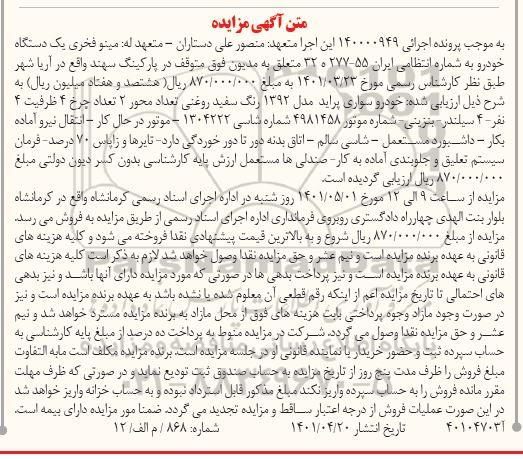 متن آگهی مزایده
به موجب پرونده اجرائی ۱۴۰۰۰۰۹۴۹ این اجرا متعهد: منصور علی دستاران - متعهد له: مینو فخری یک دستگاه
خودرو به شماره انتظامی ایران ۵۵-۲۷۷ ه ۳۲ متعلق به مدیون فوق متوقف در پارکینگ سهند واقع در آریا شهر
طبق نظر کارشناس رسمی مورخ ۱۴۰۱/۰۳/۲۳ به مبلغ ۸۷۰/۰۰۰/۰۰۰ ریال( هشتصد و هفتاد میلیون ریال) به
شرح ذیل ارزیابی شده: خودرو سواری پراید مدل ۱۳۹۲ رنگ سفید روغنی تعداد محور ۲ تعداد چرخ ۴ ظرفیت ۴
نفر- ۴ سیلندر- بنزینی- شماره موتور ۴۹۸۱۴۵۸ شماره شاسی ۱۳۰۴۲۲۲ - موتور در حال کار - انتقال نیرو آماده
بکار - داشبورد مستعمل - شاسی سالم - اتاق بدنه دور تا دور خوردگی دارد- تایرها و زاپاس ۷۰ درصد- فرمان
سیستم تعلیق و جلوبندی آماده به کار- صندلی ها مستعمل ارزش پایه کارشناسی بدون کسر دیون دولتی مبلغ
۸۷۰/۰۰۰/۰۰۰ ریال ارزیابی گردیده است.
مزایده از ساعت ۹ الی ۱۲ مورخ ۱۴۰۱/۰۵/۰۱ روز شنبه در اداره اجرای اسناد رسمی کرمانشاه واقع در کرمانشاه
بلوار بنت الهدی چهارراه دادگستری روبروی فرمانداری اداره اجرای اسناد رسمی از طریق مزایده به فروش می رسد.
مزایده از مبلغ ۸۷۰/۰۰۰/۰۰۰ ریال شروع و به بالاترین قیمت پیشنهادی نقدا فروخته می شود و کلیه هزینه های
قانونی به عهده برنده مزایده است و نیم عشر و حق مزایده نقدا وصول خواهد شد لازم به ذکر است کلیه هزینه های
قانونی به عهده برنده مزایده است و نیز پرداخت بدهی ها در صورتی که مورد مزایده دارای آنها باشد و نیز بدهی
های احتمالی تا تاریخ مزایده اعم از اینکه رقم قطعی آن معلوم شده یا نشده باشد به عهده برنده مزایده است و نیز
در صورت وجود مازاد وجوه پرداختی بابت هزینه های فوق از محل مازاد به برنده مزایده مسترد خواهد شد و نیم
عشر و حق مزایده نقدا وصول می گردد. شرکت در مزایده منوط به پرداخت ده درصد از مبلغ پایه کارشناسی به
حساب سپرده ثبت و حضور خریدار یا نماینده قانونی او در جلسه مزایده است. برنده مزایده مکلف است مابه التفاوت
مبلغ فروش را ظرف مدت پنج روز از تاریخ مزایده به حساب صندوق ثبت تودیع نماید و در صورتی که ظرف مهلت
مقرر مانده فروش را به حساب سپرده واریز نکند مبلغ مذکور قابل استرداد نبوده و به حساب خزانه واریز خواهد شد
در این صورت عملیات فروش از درجه اعتبار ساقط و مزایده تجدید می گردد. ضمنا مور مزایده دارای بیمه است.
۴۰۱۰۴۷۰۳آ تاریخ انتشار ۱۴۰۱/۰۴/۲۰ شماره: ۸۶۸ / م الف/ ۱۲